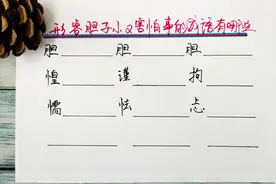 形容胆子小又害怕事的成语有哪些
胆____ 胆____ 胆____
惶____ 谨____ 拘____
懦____ 怯____ 忐____